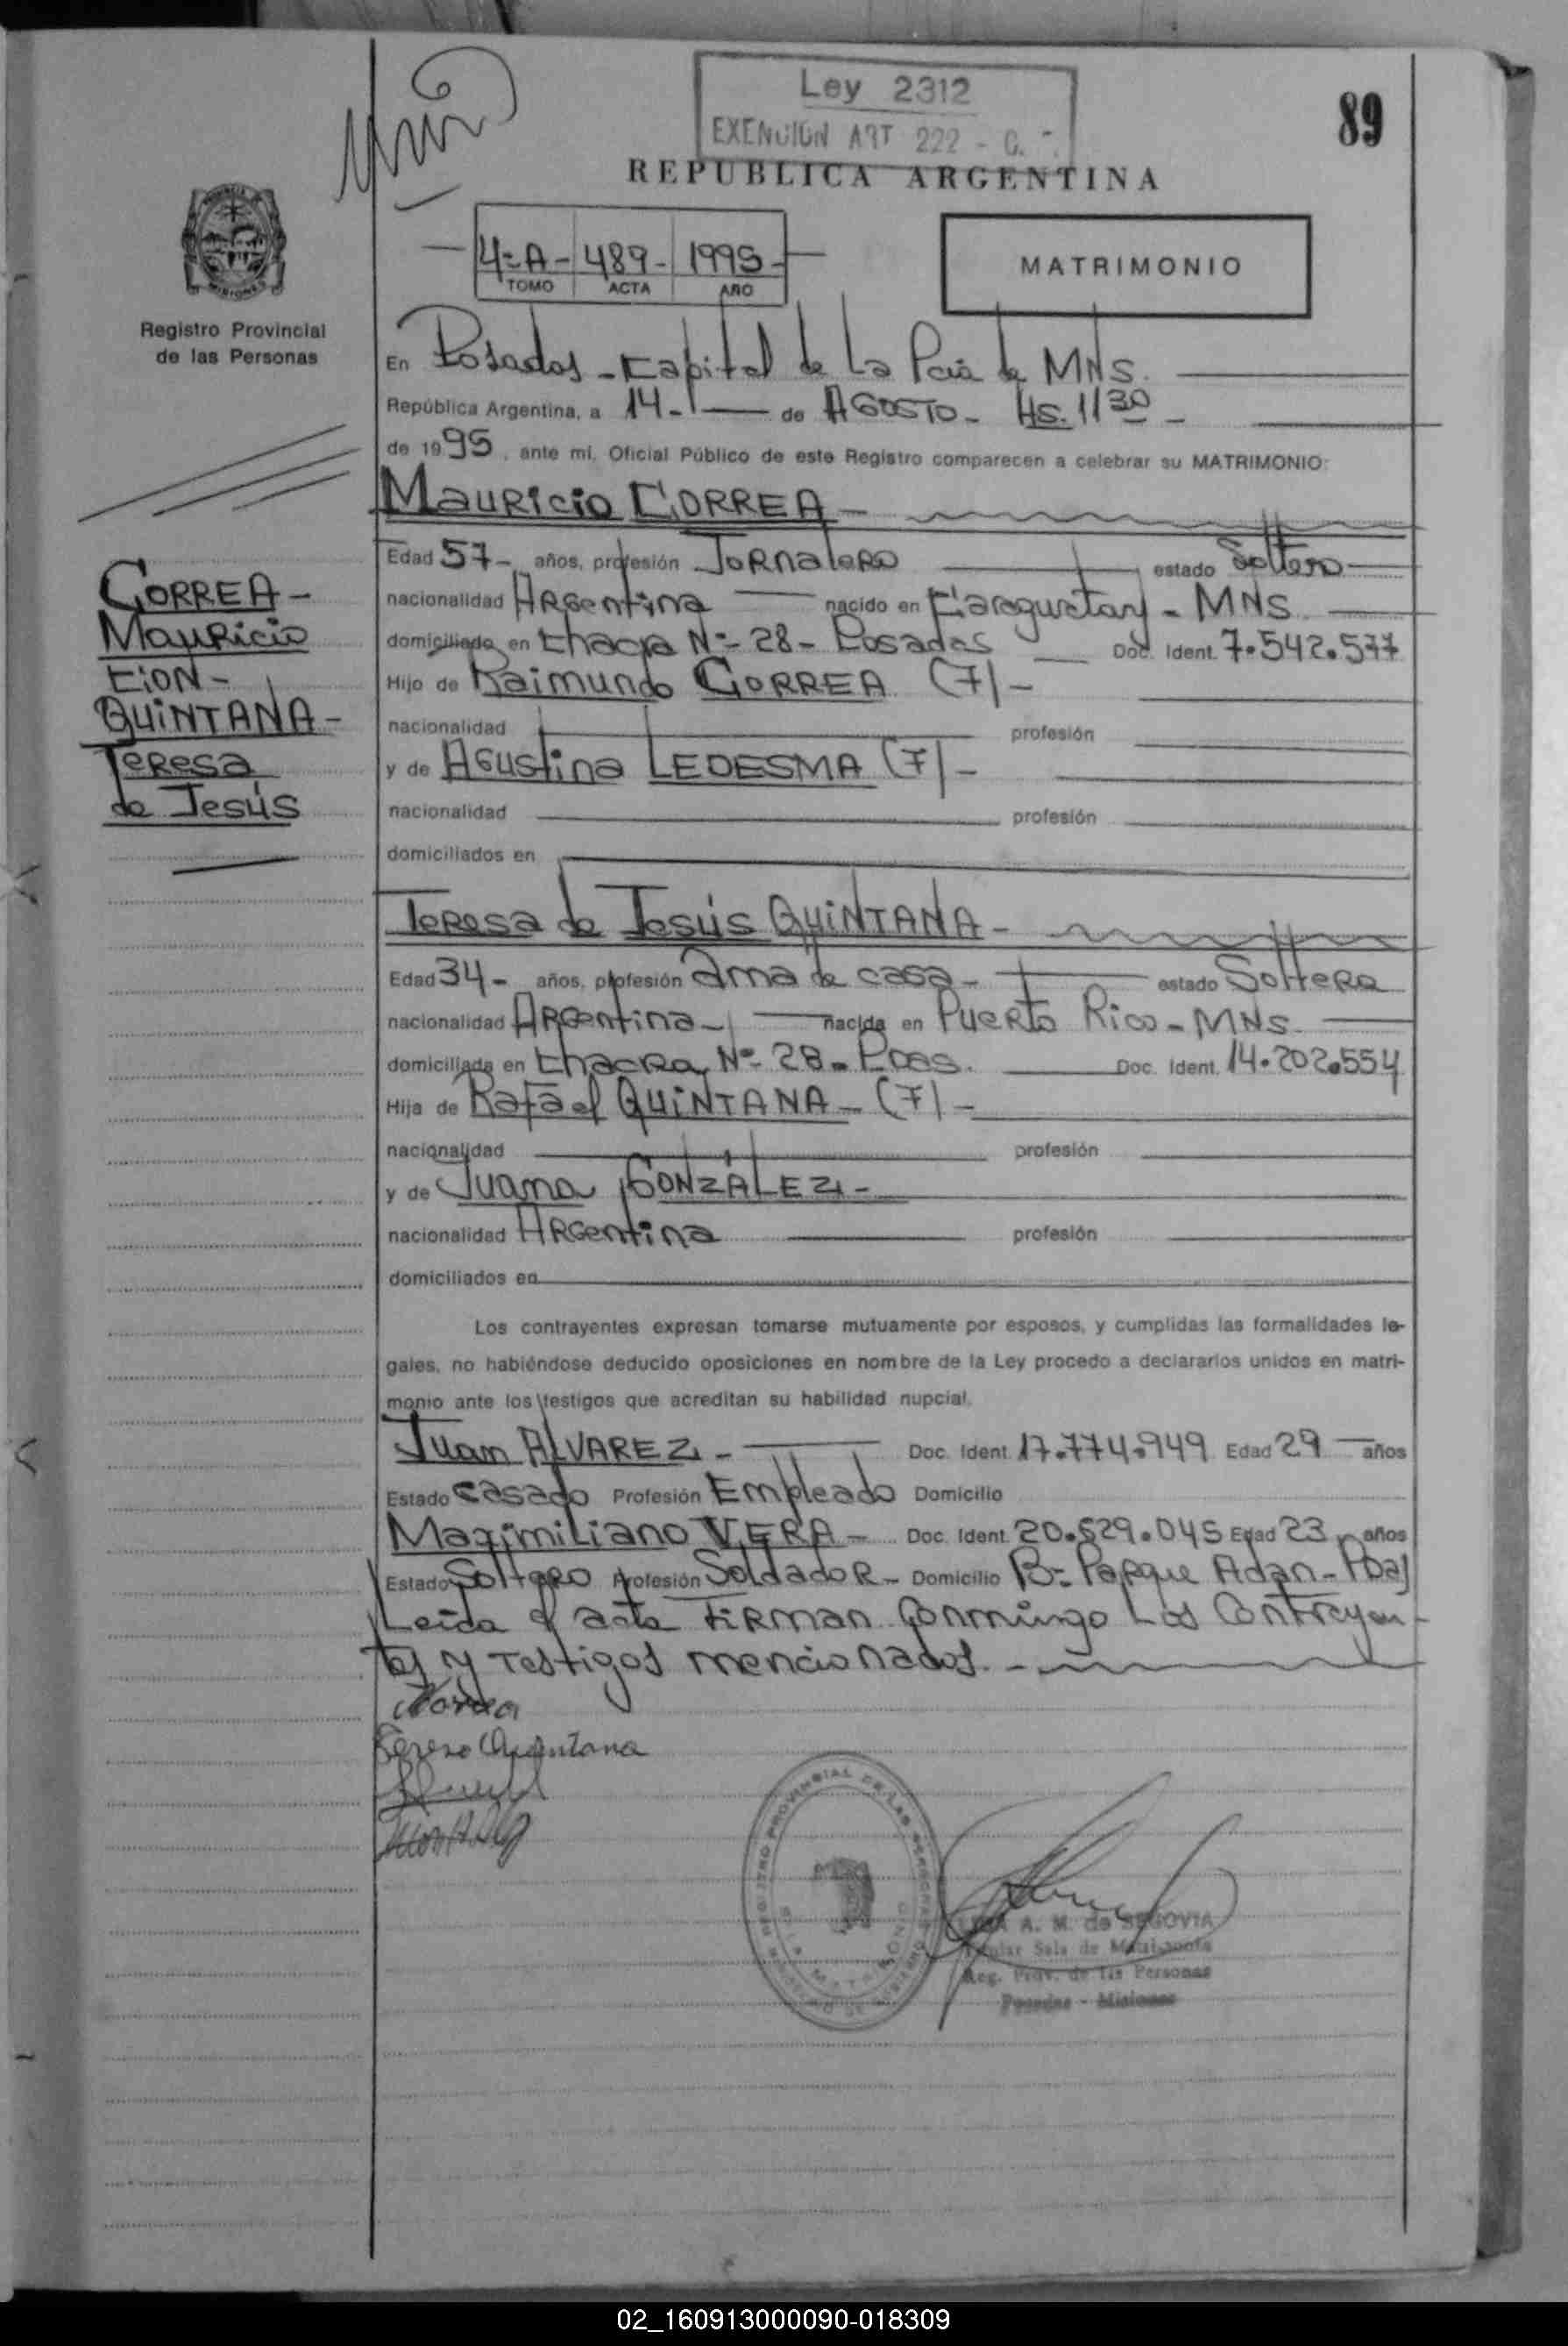 Ley 2312
EXENCION ART 222 - C.
89
REPUBLICA ARGENTINA
4=A- 489- 1995-
TOMO ACTA AÑO
MATRIMONIO
Registro Provincial
de las Personas
En Posadas - Capital de La Pcia de MNS.
República Argentina, a 14- de AGOSTO- Hs. 11 30 -
de 1995, ante mi, Oficial Público de este Registro comparecen a celebrar su MATRIMONIO:
Mauricio CORREA -
Edad 57- años, profesión Jornalero estado Soltero
nacionalidad Argentina nacido en Caraguatay - MNS.
domiciliado en Chacra Nº 28 - Posadas Doc. Ident. 7.542.577
Hijo de Raimundo CORREA (7) -
nacionalidad profesión
y de Agustina LEDESMA (7) -
nacionalidad profesión
domiciliados en
CORREA -
Mauricio
CON -
QUINTANA -
Teresa
de Jesús
Teresa de Jesús QUINTANA -
Edad 34- años, profesión Ama de casa - estado Soltera
nacionalidad Argentina - nacida en Puerto Rico - MNS.
domiciliada en Chacra Nº 28 - Pdas. Doc. Ident. 14.202.554
Hija de Rafael QUINTANA - (7) -
nacionalidad profesión
y de Juana GONZÁLEZ -
nacionalidad Argentina profesión
domiciliados en
Los contrayentes expresan tomarse mutuamente por esposos, y cumplidas las formalidades le-
gales, no habiéndose deducido oposiciones en nombre de la Ley procedo a declararlos unidos en matri-
monio ante los testigos que acreditan su habilidad nupcial.
Juan ALVAREZ - Doc. Ident. 17.774.949 Edad 29 años
Estado Casado Profesión Empleado Domicilio
Maximiliano VERA - Doc. Ident. 20.529.045 Edad 23 años
Estado Soltero Profesión Soldador - Domicilio Bº Parque Adan - Pdas
Leida el acta firman conmingo Los Contrayen-
tes y Testigos mencionados. -
Correa
Teresa Quintana
REGISTRO PROVINCIAL DE LAS PERSONAS
A. M. de SEGOVIA
Titular Sala de Matrimonio
Reg. Prov. de las Personas
Posadas - Misiones
02_160913000090-018309